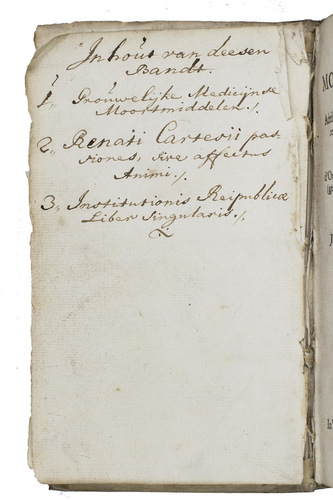 Inhout van deesen
Bandt.
1,, Grouwelijke Medicijnse
Moortmiddelen./.
2,, Renati Cartesii pas-
siones, sive affectus
Animi./.
3,, Institutionis Reipublicæ
Liber Singularis./.
MO